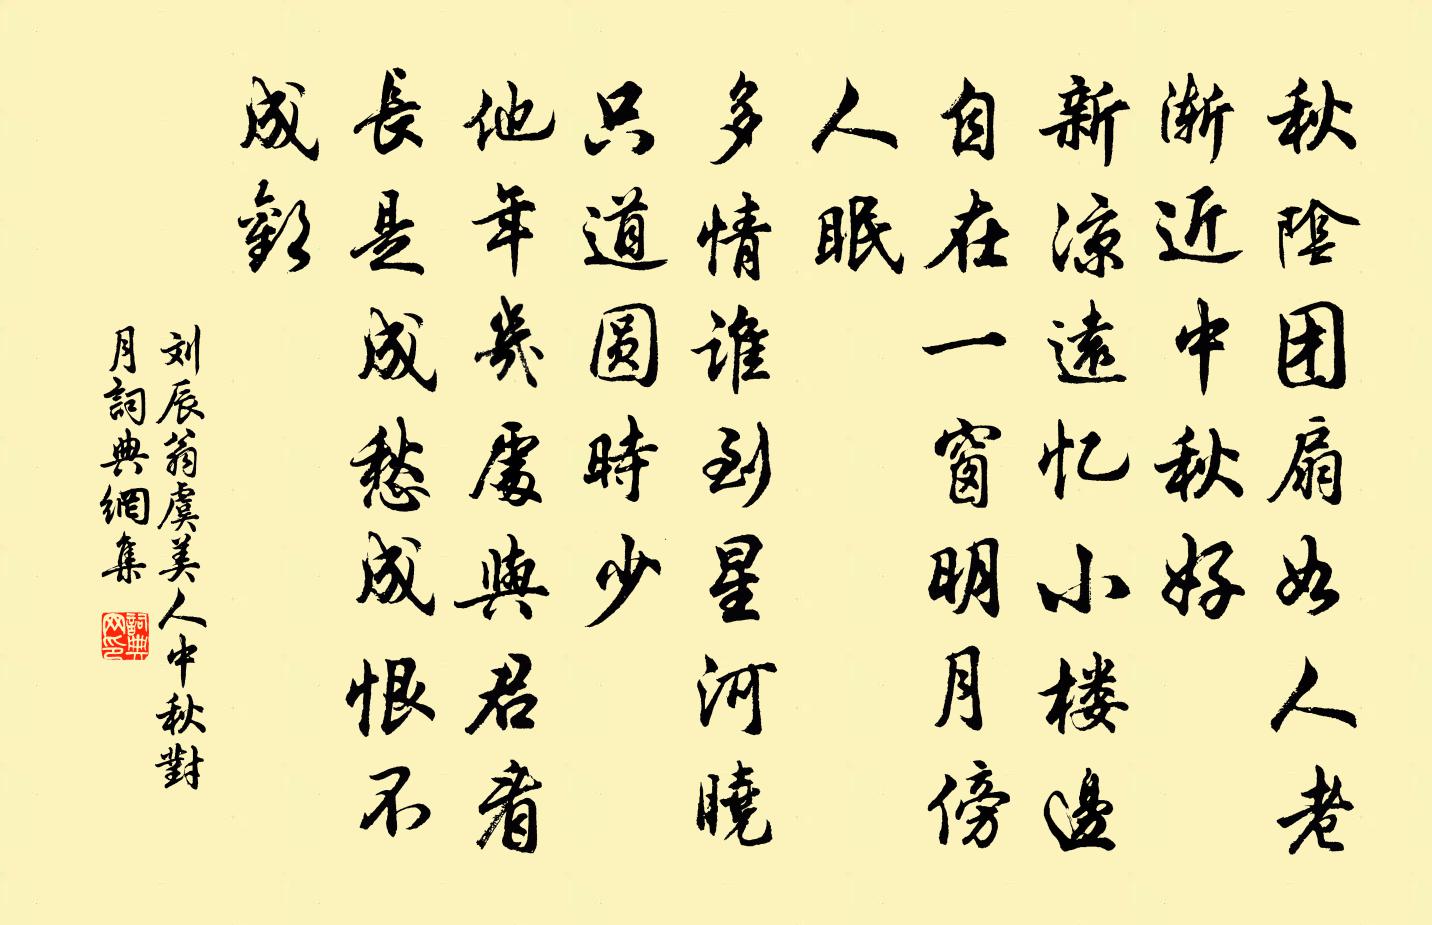 秋陰团扇如人老
渐近中秋好
新涼遠忆小楼邊
自在一窗明月傍
人眠
多情谁到星河曉
只道圆時少
他年幾處與君看
長是成愁成恨不
成歡
刘辰翁虞美人中秋對
月詞典網集
詞典
网印